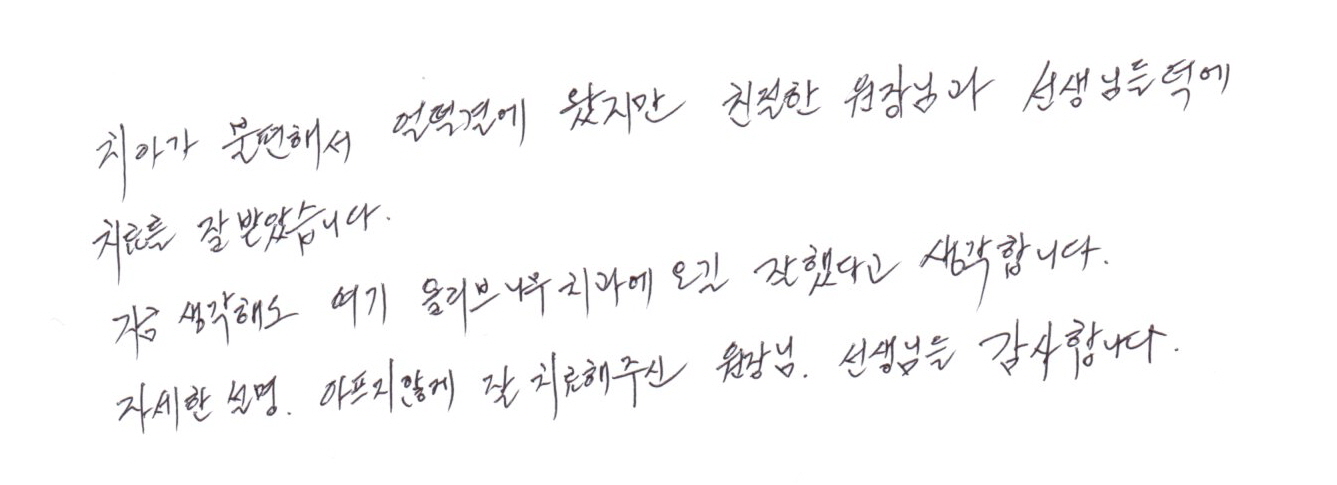 치아가 불편해서 얼떨결에 왔지만 친절한 원장님과 선생님들덕에
치료를 잘 받았습니다.
지금 생각해도 여기 올리브나무치과에 오길 잘했다고 생각합니다.
자세한 설명. 아프지않게 잘 치료해주신 원장님. 선생님들 감사합니다.